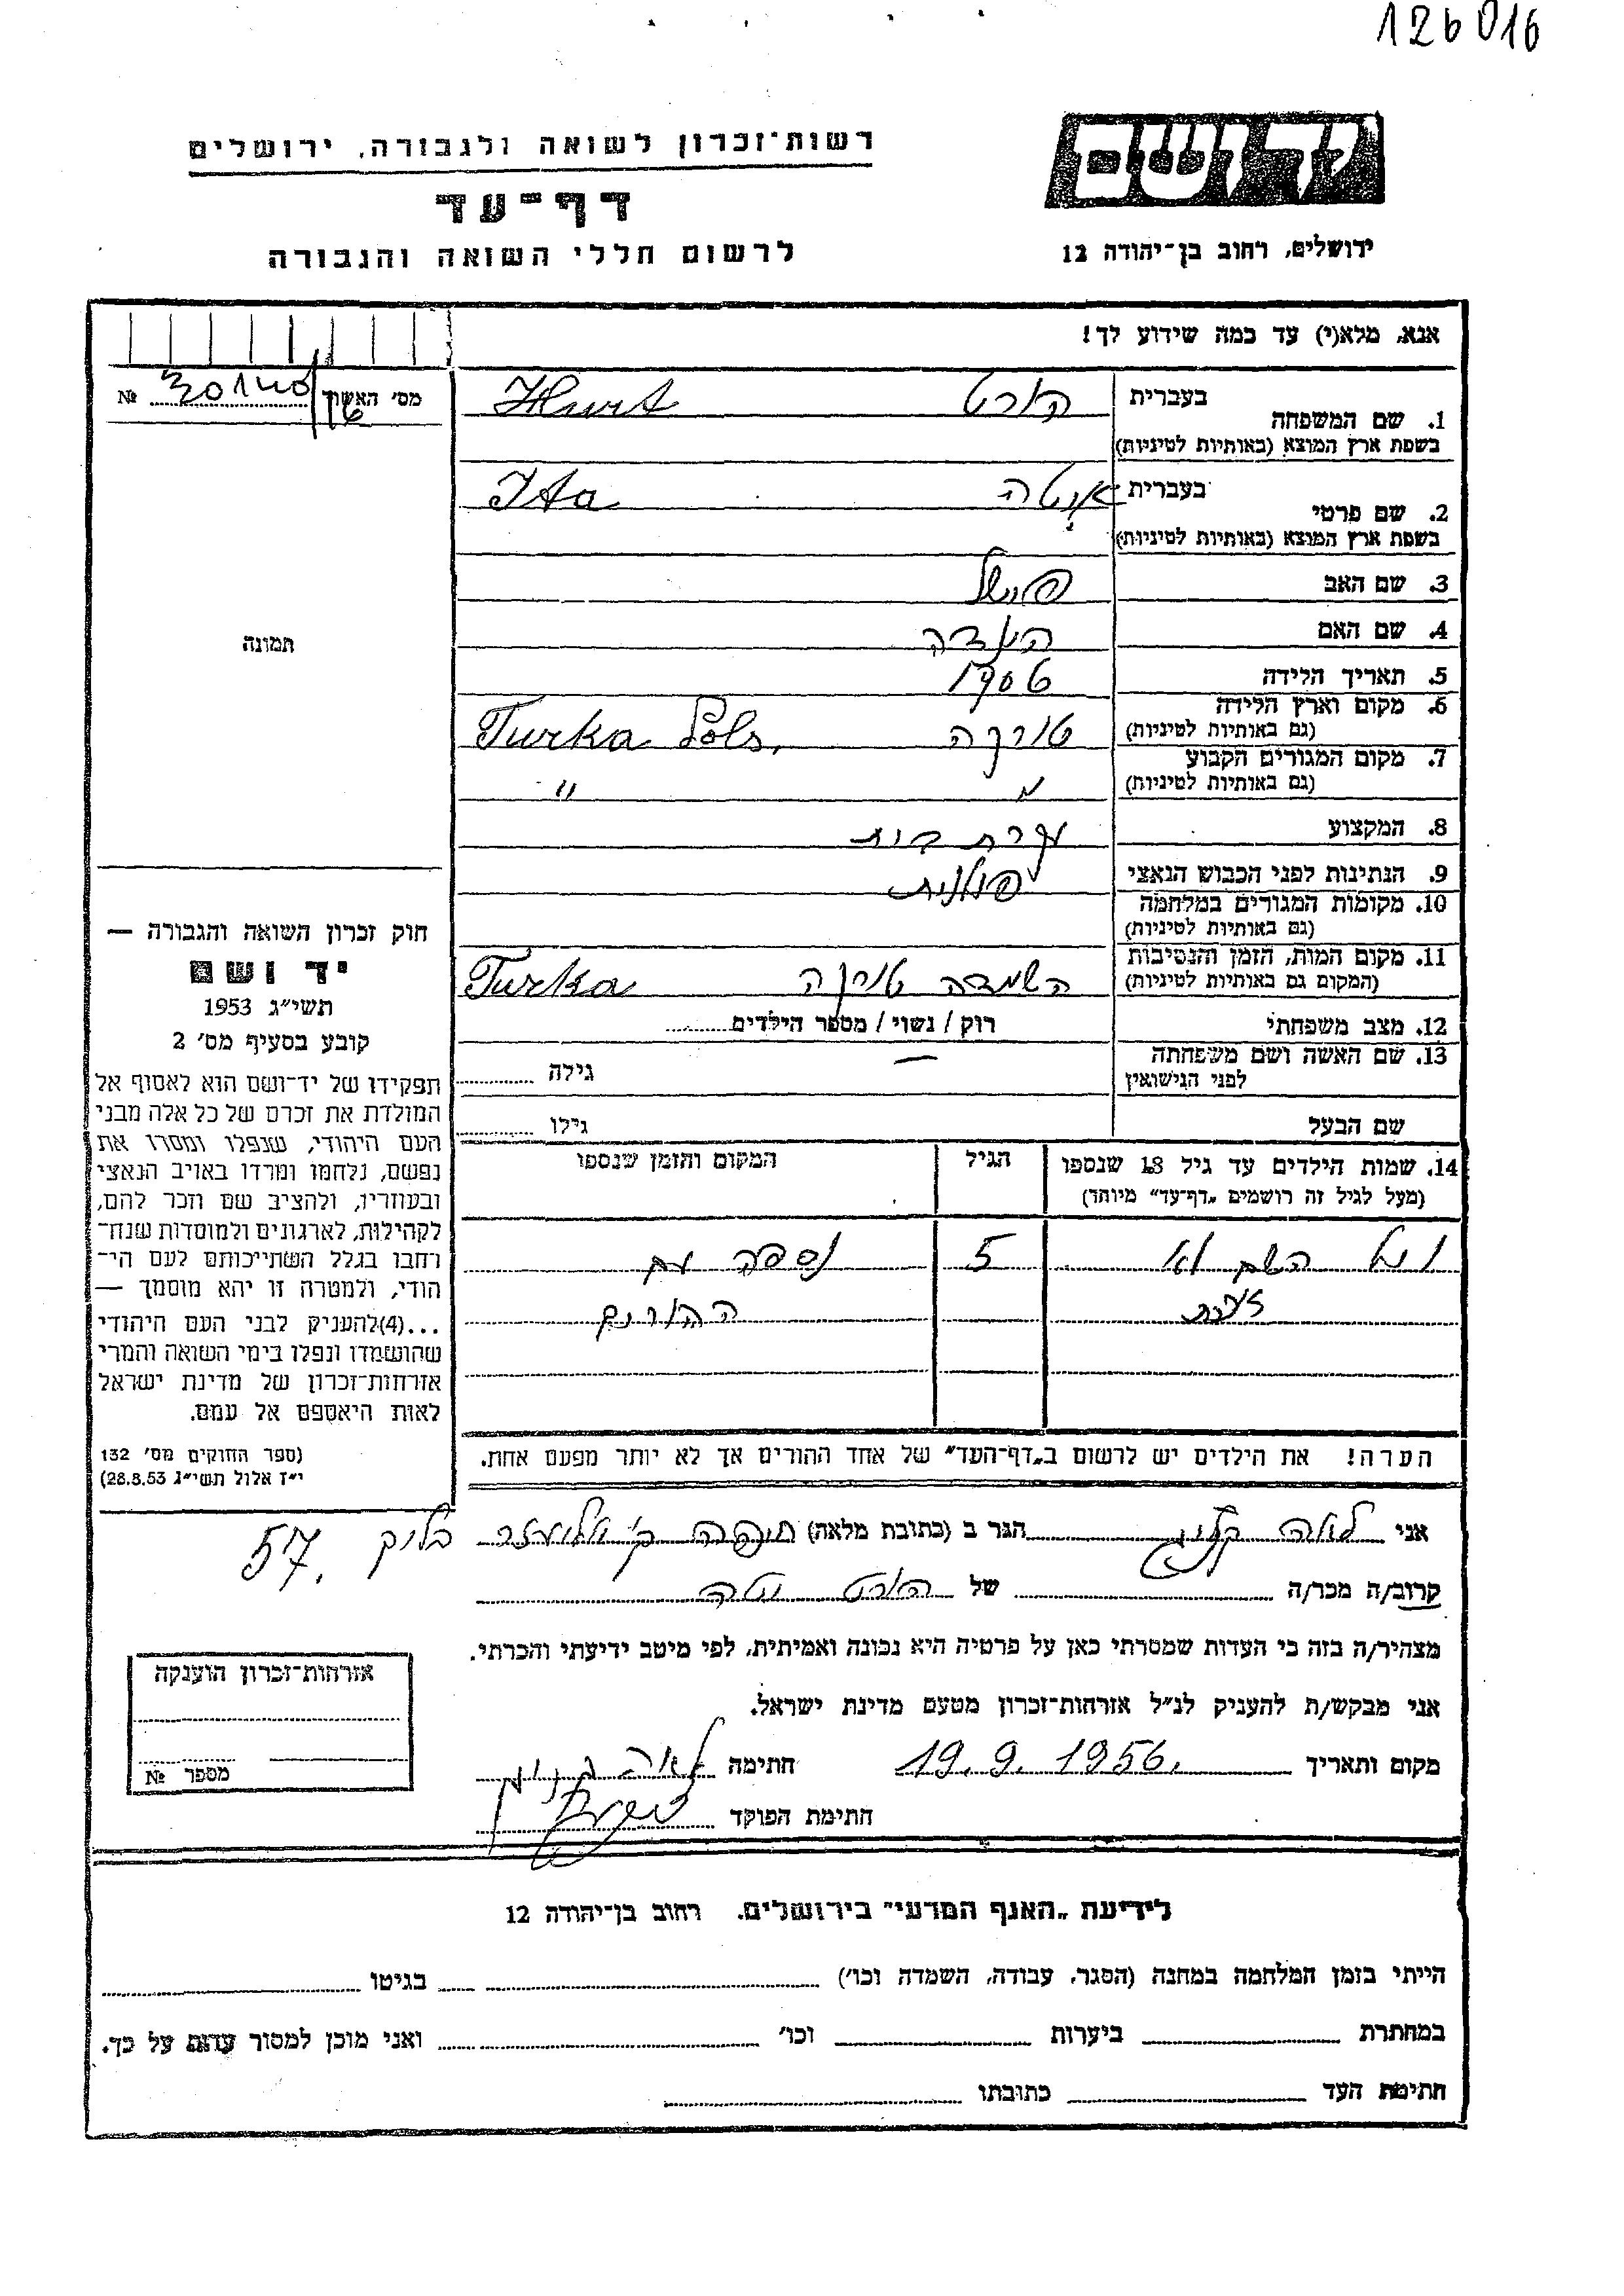 126016
יד ושם
ירושלים, רחוב בן־יהודה 12
רשות־זכרון לשואה ולגבורה, ירושלים
דף־עד
לרשום חללי השואה והגבורה
אנא, מלא(י) עד כמה שידוע לך!
מס' האשור № 30140
1. שם המשפחה בעברית הורט Hurt
בשפת ארץ המוצא (באותיות לטיניות)
2. שם פרטי בעברית איטה Ita
בשפת ארץ המוצא (באותיות לטיניות)
3. שם האב פישל
4. שם האם
5. תאריך הלידה 1906
6. מקום וארץ הלידה טורקה Turka Pols.
(גם באותיות לטיניות)
7. מקום המגורים הקבוע " "
(גם באותיות לטיניות)
8. המקצוע עקרת בית
9. הנתינות לפני הכבוש הנאצי פולנית
10. מקומות המגורים במלחמה
(גם באותיות לטיניות)
11. מקום המות, הזמן והנסיבות השמדה טורקה Turka
(המקום גם באותיות לטיניות)
12. מצב משפחתי רוק / נשוי / מספר הילדים
13. שם האשה ושם משפחתה — גילה
לפני הנישואין
שם הבעל גילו
14. שמות הילדים עד גיל 18 שנספו הגיל המקום והזמן שנספו
(מעל לגיל זה רושמים „דף־עד" מיוחד)
השם לא 5 נספה עם
ההורים
הערה! את הילדים יש לרשום ב„דף־העד" של אחד ההורים אך לא יותר מפעם אחת.
תמונה
חוק זכרון השואה והגבורה —
יד ושם
תשי"ג 1953
קובע בסעיף מס' 2
תפקידו של יד־ושם הוא לאסוף אל
המולדת את זכרם של כל אלה מבני
העם היהודי, שנפלו ומסרו את
נפשם, נלחמו ומרדו באויב הנאצי
ובעוזריו, ולהציב שם וזכר להם,
לקהילות, לארגונים ולמוסדות שנח־
רחבו בגלל השתייכותם לעם הי־
הודי, ולמטרה זו יהא מוסמך —
...(4)להעניק לבני העם היהודי
שהושמדו ונפלו בימי השואה והמרי
אזרחות־זכרון של מדינת ישראל
לאות היאספם אל עמם.
(ספר החוקים מס' 132
י"ז אלול תשי"ג 28.8.53)
אני לאה הגר ב (כתובת מלאה) חיפה ק' אליעזר בלוק 57.
קרוב/ה מכר/ה של הורט יטה
מצהיר/ה בזה כי העדות שמסרתי כאן על פרטיה היא נכונה ואמיתית, לפי מיטב ידיעתי והכרתי.
אני מבקש/ת להעניק לנ"ל אזרחות־זכרון מטעם מדינת ישראל.
מקום ותאריך 19.9.1956. חתימה לאה
חתימת הפוקד
אזרחות־זכרון הוענקה
מספר №
לידיעת „האגף המדעי" בירושלים. רחוב בן־יהודה 12
הייתי בזמן המלחמה במחנה (הסגר, עבודה, השמדה וכו') בגיטו
במחתרת ביערות וכו' ואני מוכן למסור עדות על כך.
חתימת העד כתובתו